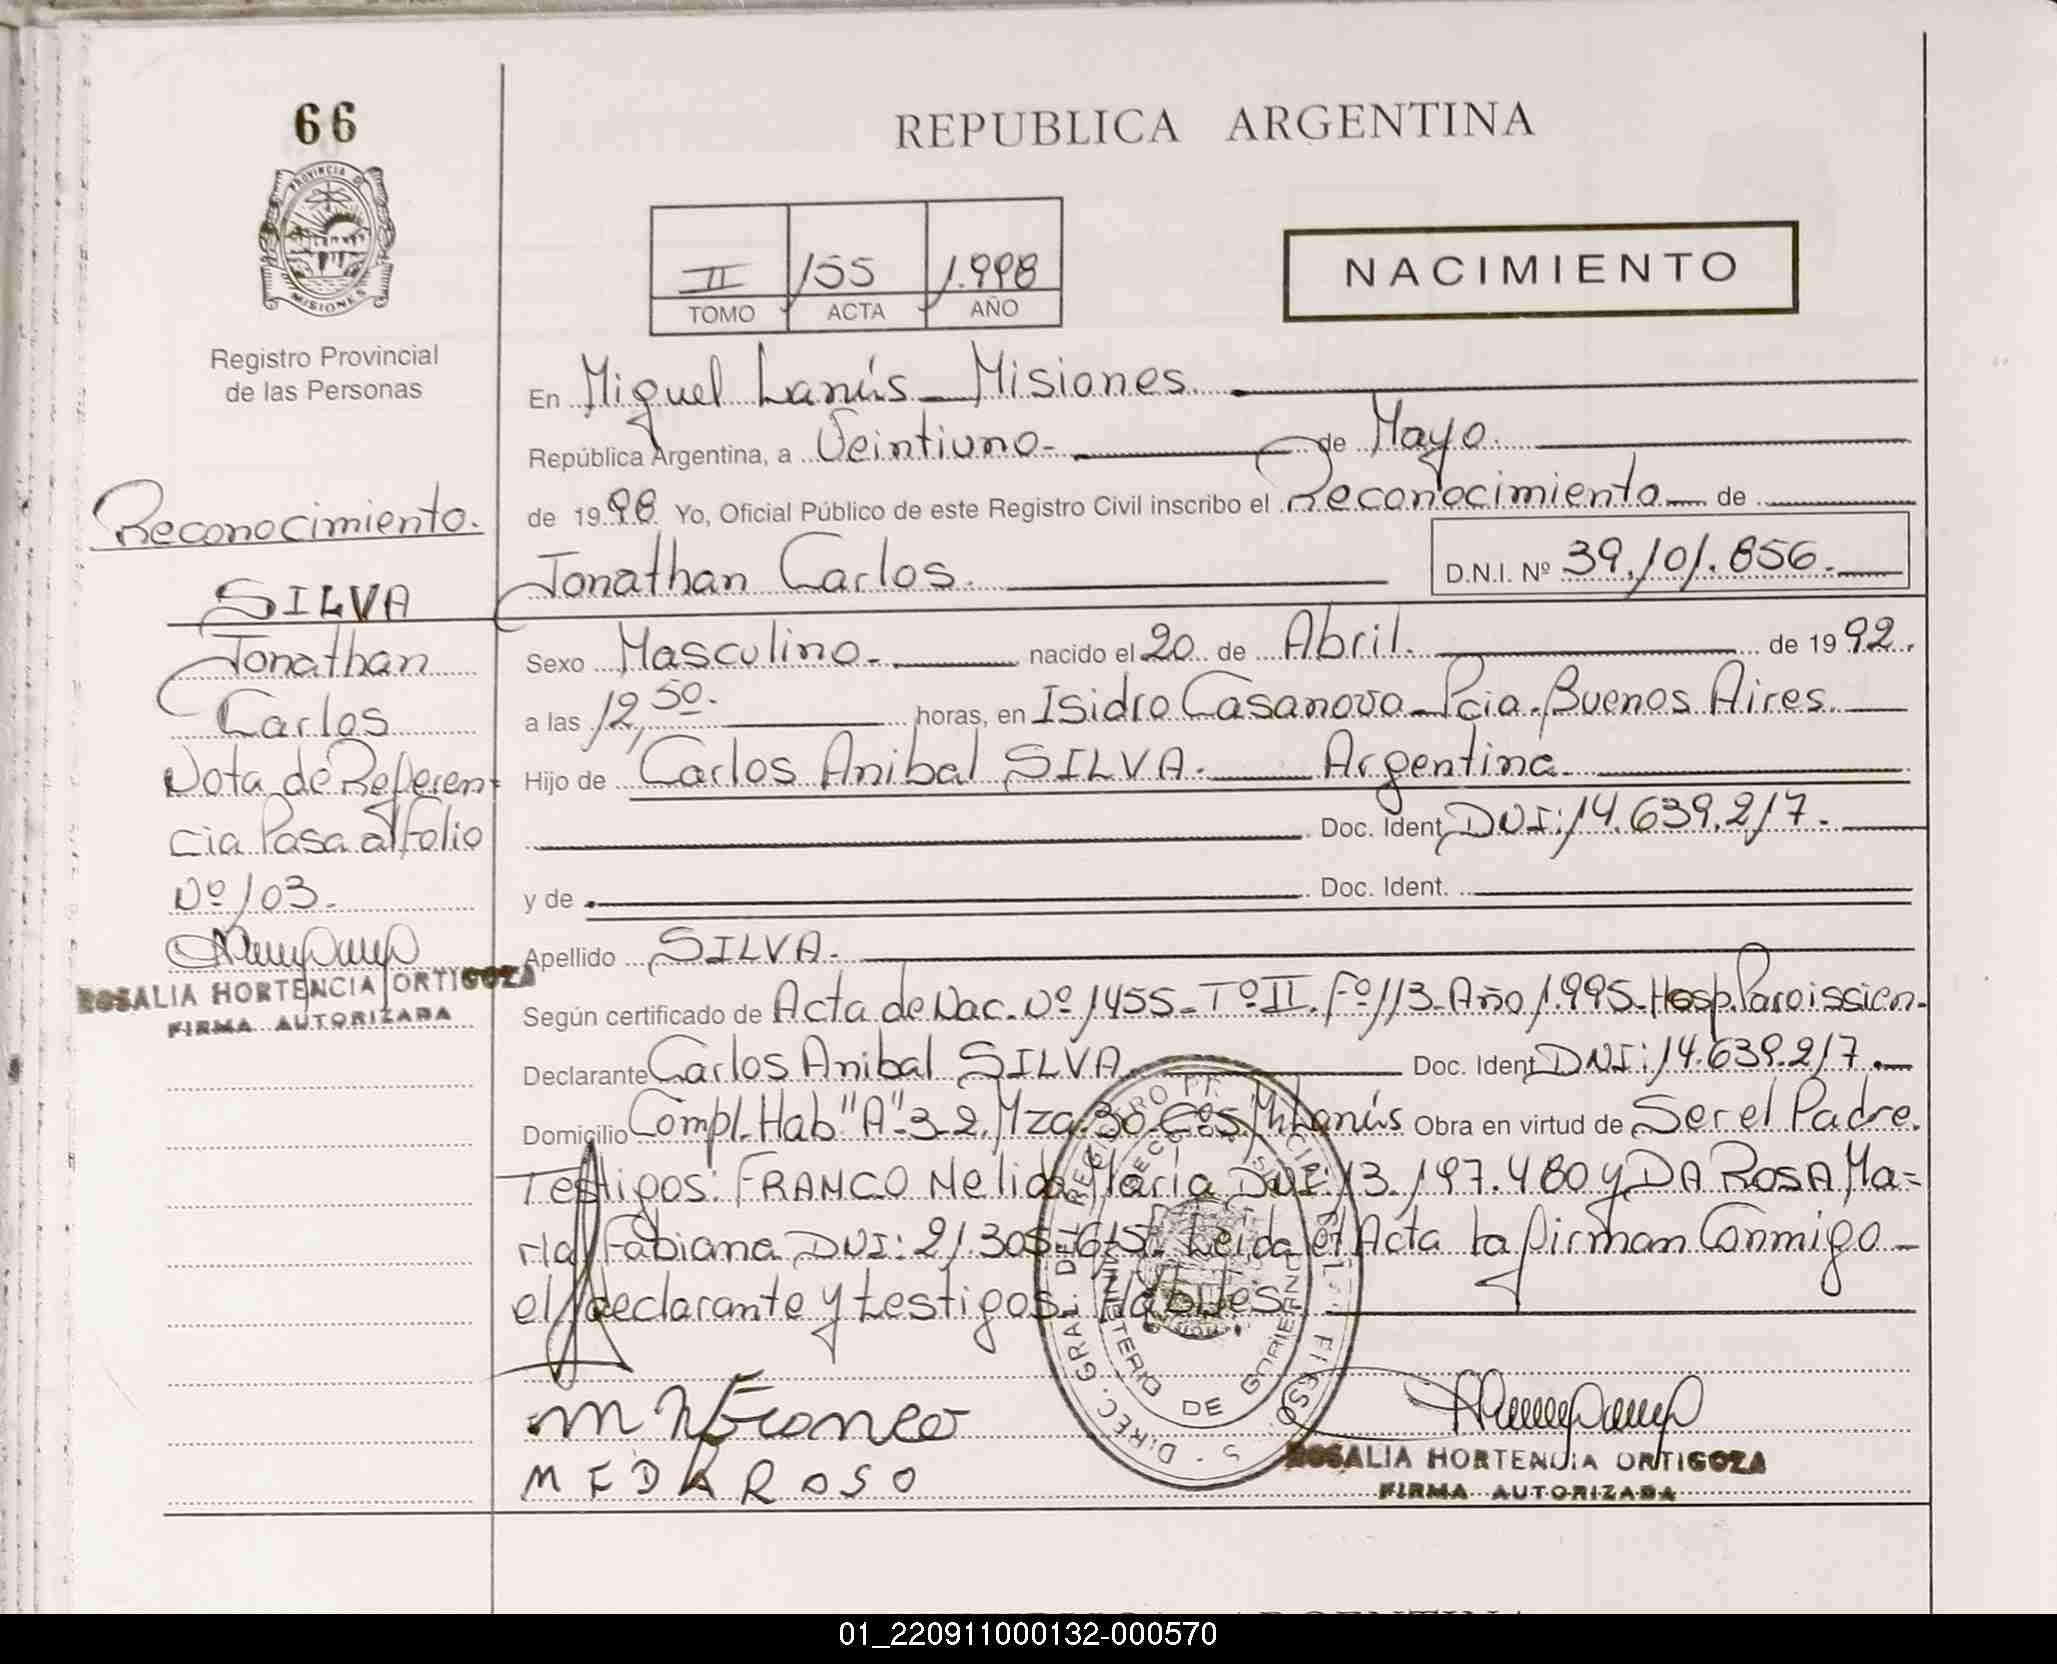 66
PROVINCIA D
MISIONES
Registro Provincial
de las Personas
Reconocimiento.
SILVA
Jonathan
Carlos
Nota de Referen-
cia Pasa al folio
Nº 103.
ROSALIA HORTENCIA ORTIGOZA
FIRMA AUTORIZADA
REPUBLICA ARGENTINA
II 155 1.998
TOMO ACTA AÑO
NACIMIENTO
En Miguel Lanús - Misiones
República Argentina, a Veintiuno- de Mayo.
de 1998 Yo, Oficial Público de este Registro Civil inscribo el Reconocimiento de
Jonathan Carlos. D.N.I. Nº 39.101.856.
Sexo Masculino. nacido el 20 de Abril. de 1992.
a las 12,50. horas, en Isidro Casanova - Pcia. Buenos Aires.
Hijo de Carlos Anibal SILVA. Argentina.
Doc. Ident. DNI: 14.639.217.
y de Doc. Ident.
Apellido SILVA.
Según certificado de Acta de Nac. Nº 1455 - Tº II. Fº 113 - Año 1.995 - Hosp. Paroissien.
Declarante Carlos Anibal SILVA. Doc. Ident. DNI: 14.639.217.
Domicilio Compl. Hab "A" 3-2. Mza. 30 Cºs. M. Lanús Obra en virtud de Ser el Padre.
Testigos: FRANCO Nelida Maria DNI: 13.197.480 y DA ROSA Ma=
ria Fabiana DNI: 21.305.615. Leida el Acta la firman Conmigo
el declarante y testigos. Habiles.
M N Franco
M F DA ROSO
DIREC. GRAL. DEL REGISTRO
MINISTERIO DE GOBIERNO
ROSALIA HORTENCIA ORTIGOZA
FIRMA AUTORIZADA
01_220911000132-000570